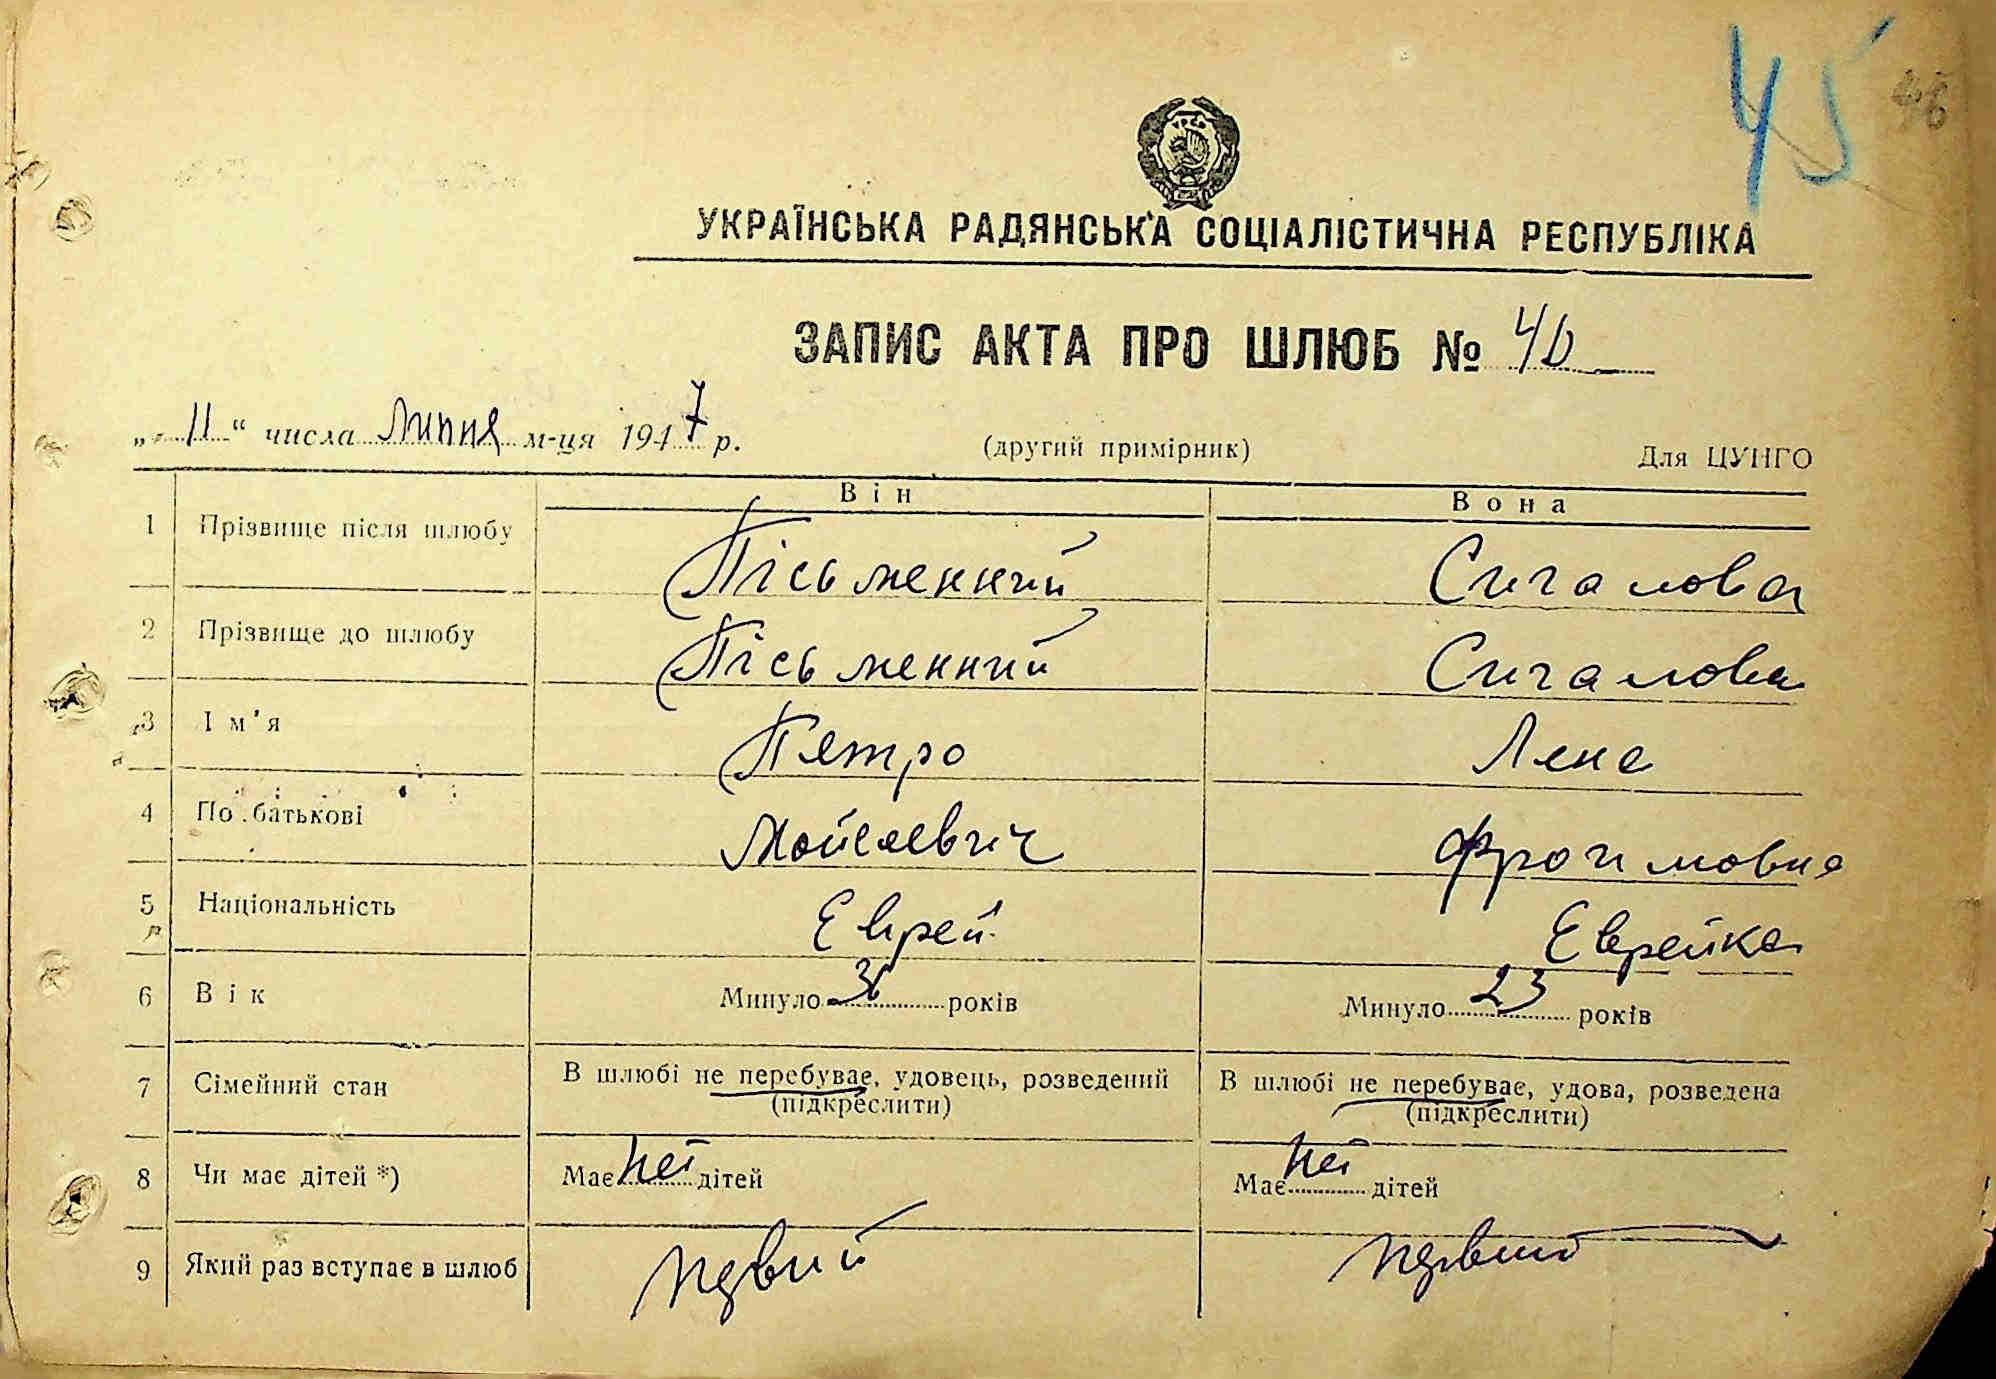 45
46
УРСР
УКРАЇНСЬКА РАДЯНСЬКА СОЦІАЛІСТИЧНА РЕСПУБЛІКА
ЗАПИС АКТА ПРО ШЛЮБ № 40
„ 11 “ числа Липня м-ця 1947 р. (другий примірник) Для ЦУНГО
Він Вона
1 Прізвище після шлюбу Пісьменний Сигалова
2 Прізвище до шлюбу Пісьменний Сигалова
3 Ім'я Петро Лена
4 По батькові Мойсеевич Фроимовна
5 Національність Еврей Еврейка
6 Вік Минуло років Минуло 23 років
7 Сімейний стан В шлюбі не перебуває, удовець, розведений В шлюбі не перебуває, удова, розведена
(підкреслити) (підкреслити)
8 Чи має дітей *) Має неї дітей Має неї дітей
9 Який раз вступає в шлюб первий первий